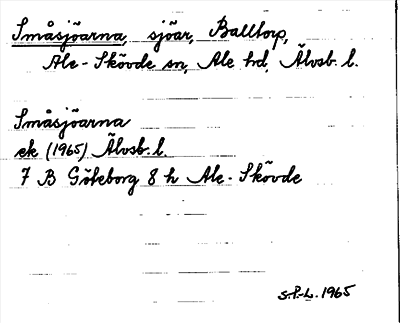 Småsjöarna, sjöar, Balltorp,
Ale-Skövde sn, Ale hd, Älvsb. l.
Småsjöarna
ek (1965) Älvsb. l.
7 B Göteborg 8 h Ale-Skövde
S.P.-L. 1965